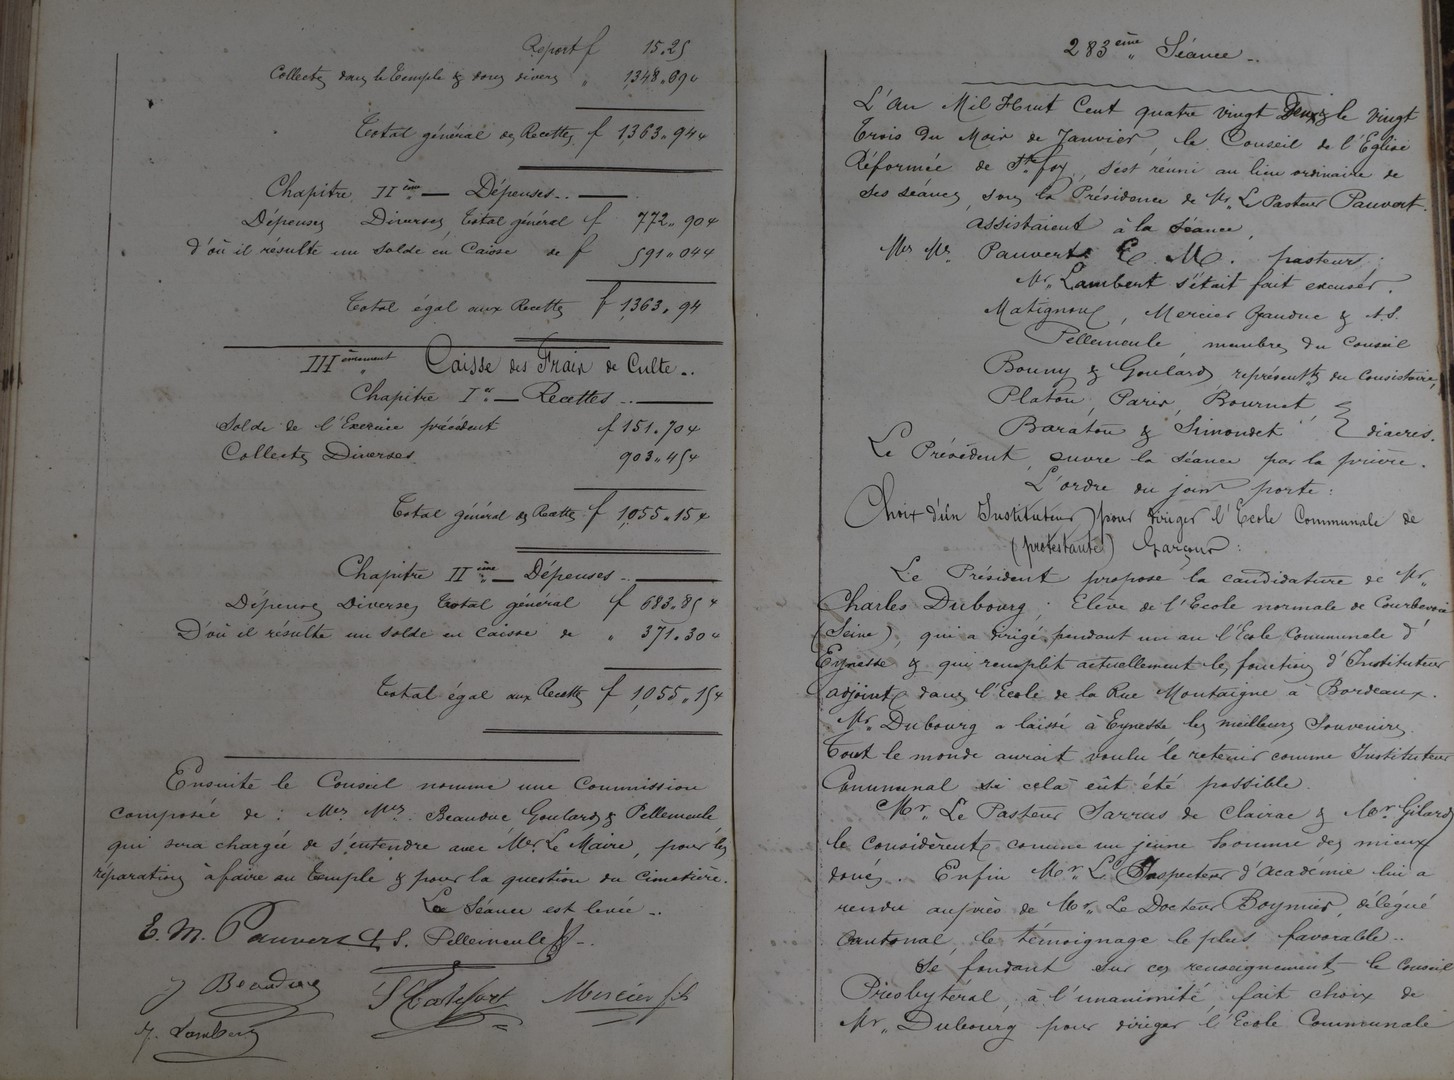 Report f 15.25
Collectes dans le Temple & dons divers " 1,348.69 "
Total général des Recettes f 1,363.94 "
Chapitre II ème — Dépenses.. —
Dépenses Diverses Total général f 772.90 "
d'où il résulte un solde en Caisse de f 591.04 "
Total égal aux Recettes f 1,363.94
III èmement Caisse des Frais de Culte..
Chapitre I er — Recettes ..
Solde de l'Exercice précédent f 151.70 "
Collectes Diverses 903.45 "
Total général des Recettes f 1,055.15 "
Chapitre II ème — Dépenses ..
Dépenses Diverses, Total général f 683.85 "
D'où il résulte un solde en caisse de " 371.30 "
Total égal aux Recettes f 1,055.15 "
Ensuite le Conseil nomme une Commission
composée de : Mrs Mrs. Beauduc Goulard & Pellemeule
qui sera chargée de s'entendre avec Mr. Le Maire, pour les
réparations à faire au Temple & pour la question du Cimetière.
La Séance est levée ..
E. M. Pauvert A. S. Pellemeule
J Beauduc Mercier fils
J. Lambert
283 ème Séance ..
L'an Mil Huit Cent quatre vingt Deux & le vingt
trois du Mois de Janvier, le Conseil de l'Eglise
Réformée de Ste foy, s'est réuni au lieu ordinaire de
ses séances, sous la Présidence de Mr. Le Pasteur Pauvert.
assistaient à la Séance,
Mrs Mrs. Pauvert E. M. pasteur ;
Mr. Lambert s'était fait excuser.
Matignon, Mercier Bauduc & A. S.
Pellemeule, membres du Conseil
Bouny & Goulard, représents du Consistoire,
Platon, Paris, Bournet,
Baraton & Simondet } diacres.
Le Président, ouvre la séance par la prière.
L'ordre du jour porte :
Choix d'un Instituteur pour diriger l'Ecole Communale de
(protestante) Garçons :
Le Président propose la candidature de Mr.
Charles Dubourg ; Elève de l'Ecole normale de Courbevoie
(Seine), qui a dirigé pendant un an l'Ecole Communale d'
Eynesse & qui remplit actuellement les fonctions d'Instituteur
adjoint dans l'Ecole de la Rue Montaigne à Bordeaux.
Mr. Dubourg a laissé à Eynesse les meilleurs Souvenirs.
Tout le monde aurait voulu le retenir comme Instituteur
Communal si celà eût été possible.
Mr. Le Pasteur Sarrus de Clairac & Mr. Gilard
le considèrent comme un jeune homme des mieux
doués. Enfin Mr. L'Inspecteur d'académie lui a
rendu auprès de Mr. Le Docteur Boymier, délégué
Cantonal, le témoignage le plus favorable ..
Se fondant sur ces renseignements le Conseil
Presbytéral, à l'unanimité, fait choix de
Mr. Dubourg pour diriger l'Ecole Communale